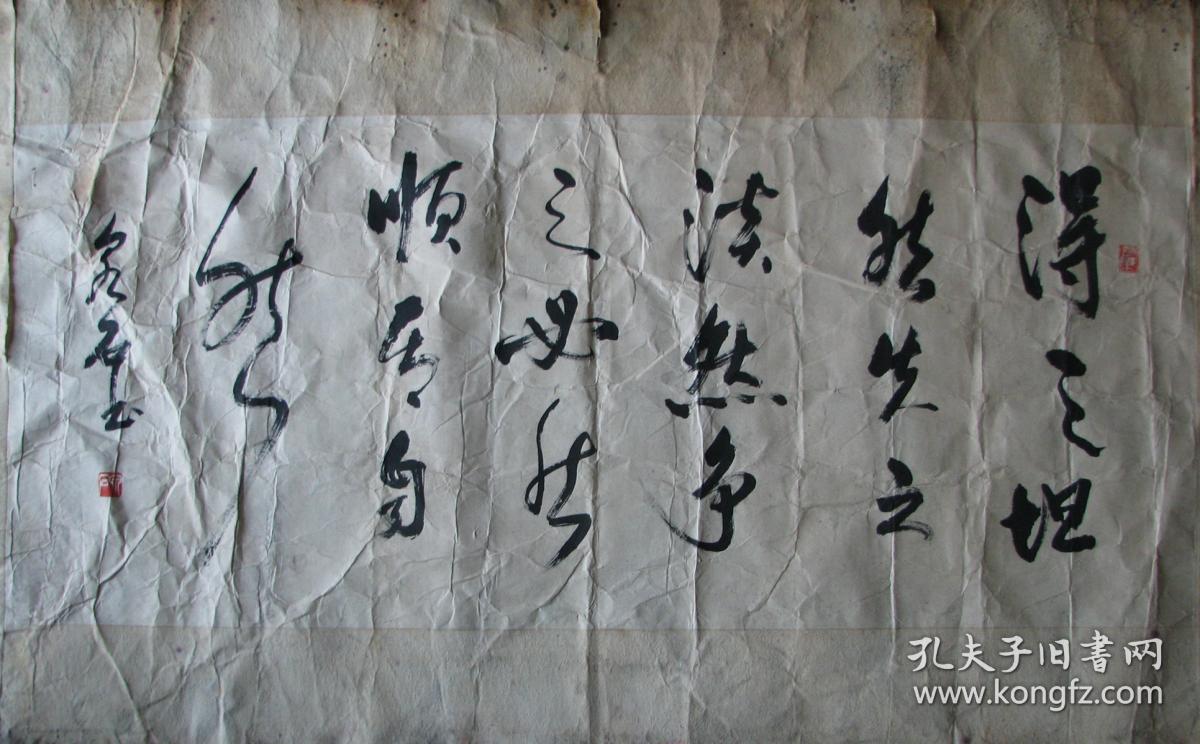 得之坦
然失之
淡然争
之必然
顺其自
然
石书
孔夫子旧書网
www.kongfz.com